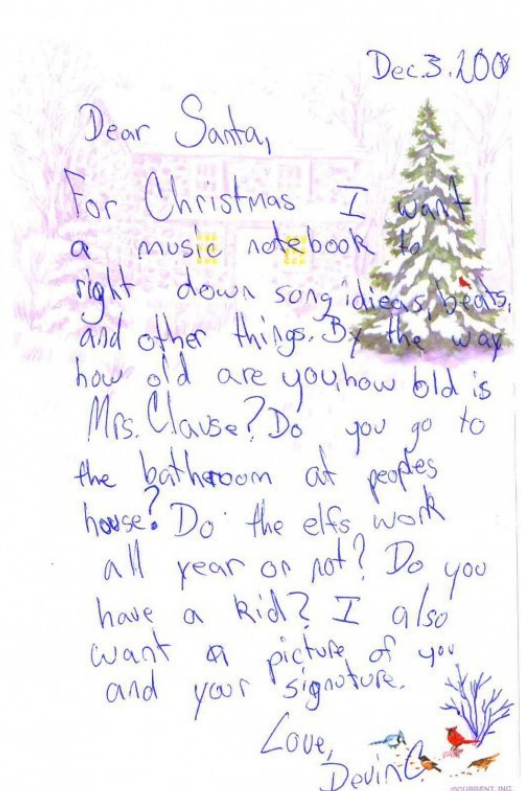 Dec.3.2008
Dear Santa,
For Christmas I want
a music notebook to
right down song idieas, beats,
and other things. By the way
how old are you, how old is
Mrs. Clause? Do you go to
the bathroom at peoples
house? Do the elfs work
all year or not? Do you
have a kid? I also
want a picture of you
and your signature.
Love,
Devin C
©CURRENT, INC.